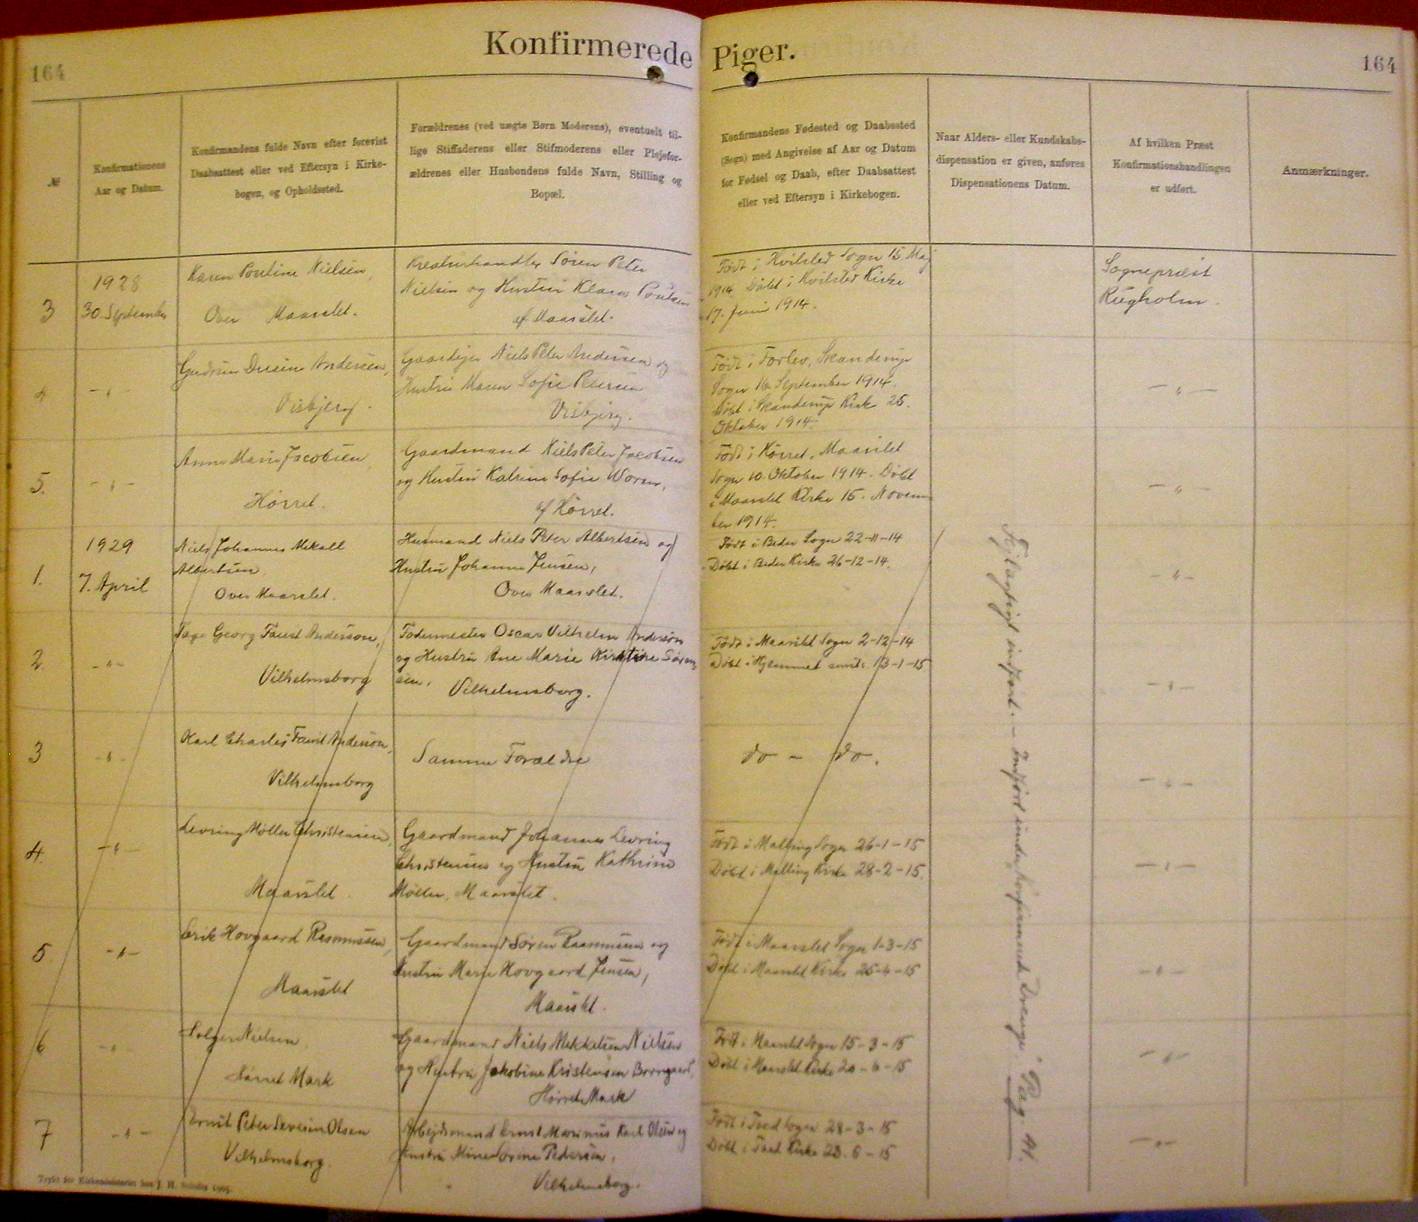 Konfirmerede Piger.
164
164
№
Konfirmationens
Aar og Datum.
Konfirmandens fulde Navn efter forevist
Daabsattest eller ved Eftersyn i Kirke-
bogen, og Opholdssted.
Forældrenes (ved uægte Børn Moderens), eventuelt til-
lige Stiffaderens eller Stifmoderens eller Plejefor-
ældrenes eller Husbondens fulde Navn, Stilling og
Bopæl.
Konfirmandens Fødested og Daabssted
(Sogn) med Angivelse af Aar og Datum
for Fødsel og Daab, efter Daabsattest
eller ved Eftersyn i Kirkebogen.
Naar Alders- eller Kundskabs-
dispensation er given, anføres
Dispensationens Datum.
Af hvilken Præst
Konfirmationshandlingen
er udført.
Anmærkninger.
3
1928
30. September
Karen Pouline Nielsen,
Over Maarslet.
Kreaturhandler Søren Peter
Nielsen og Hustru Klara Poulsen
af Maarslet.
Født i Hvilsted Sogn 15 Maj
1914. Døbt i Hvilsted Kirke
17. Juni 1914.
Sognepræst
Rugholm.
4
- " -
Gudrun Andersen,
Visbjerg.
Gaardejer Niels Peter Andersen og
Hustru Maren Sofie
Visbjerg.
Født i Forlev, Skanderup
Sogn 16. September 1914.
Døbt i Skanderup Kirke 25.
Oktober 1914.
- " -
5.
- " -
Anna Marie Jacobsen,
Hørret.
Gaardmand Niels Peter Jacobsen
og Hustru Katrine Sofie
af Hørret.
Født i Hørret, Maarslet
Sogn 10. Oktober 1914. Døbt
i Maarslet Kirke 15. Novem-
ber 1914.
- " -
1.
1929
7. April
Niels Johannes Mikael
Albertsen
Over Maarslet.
Husmand Niels Peter Albertsen og
Hustru Johanne Jensen,
Over Maarslet.
Født i Beder Sogn 22-11-14
Døbt i Beder Kirke 26-12-14.
- " -
2.
- " -
Tage Georg Faust Anderson,
Vilhelmsborg
Fodermester Oscar Vilhelm Anderson
og Hustru Ane Marie Kirstine Søren-
sen, Vilhelmsborg.
Født i Maarslet Sogn 2-12-14
Døbt i Hjemmet 13-1-15
- " -
3
- " -
Karl Charles Faust Anderson,
Vilhelmsborg
Samme Forældre
do - do.
- " -
4.
- " -
Levring Møller Christensen,
Maarslet.
Gaardmand Johannes Levring
Christensen og Hustru Kathrine
Møller, Maarslet.
Født i Malling Sogn 26-1-15
Døbt i Malling Kirke 28-2-15.
- " -
5
- " -
Erik Hovgaard Rasmussen,
Maarslet
Gaardmand Søren Rasmussen og
Hustru Marie Hovgaard Jensen,
Maarslet.
Født i Maarslet Sogn 1-3-15
Døbt i Maarslet Kirke 25-4-15
- " -
6
- " -
Holger Nielsen
Hørret Mark
Gaardmand Niels Mikkelsen Nielsen
og Hustru Jakobine Kristensen
Hørret Mark
Født i Maarslet Sogn 15-3-15
Døbt i Maarslet Kirke
- " -
7
- " -
Ernst Peter Severin Olsen
Vilhelmsborg.
Arbejdsmand Ernst Marinus Karl Olsen og
Hustru Pedersen,
Vilhelmsborg.
Født i Sogn 28-3-15
Døbt i Kirke
- " -
Fejlagtigt indført. - Indført under "Konfirmerede Drenge" Pag. 41.
Trykt for Kirkeministeriet hos J. H. Schultz